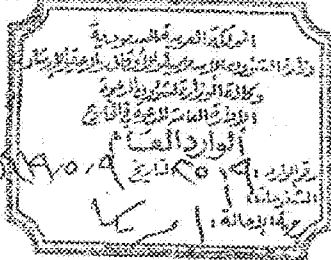 المملكة العربية السعودية
وزارة الشؤون الإسلامية والأوقاف والدعوة والإرشاد
وكالة الوزارة لشئون الدعوة
الإدارة العامة للدعوة في الخارج
الوارد العام
رقم الوارد: ٢٠١٩ تاريخ ٩/٥/١٩
المشفوعات:
جهة الإحالة: أمريكا